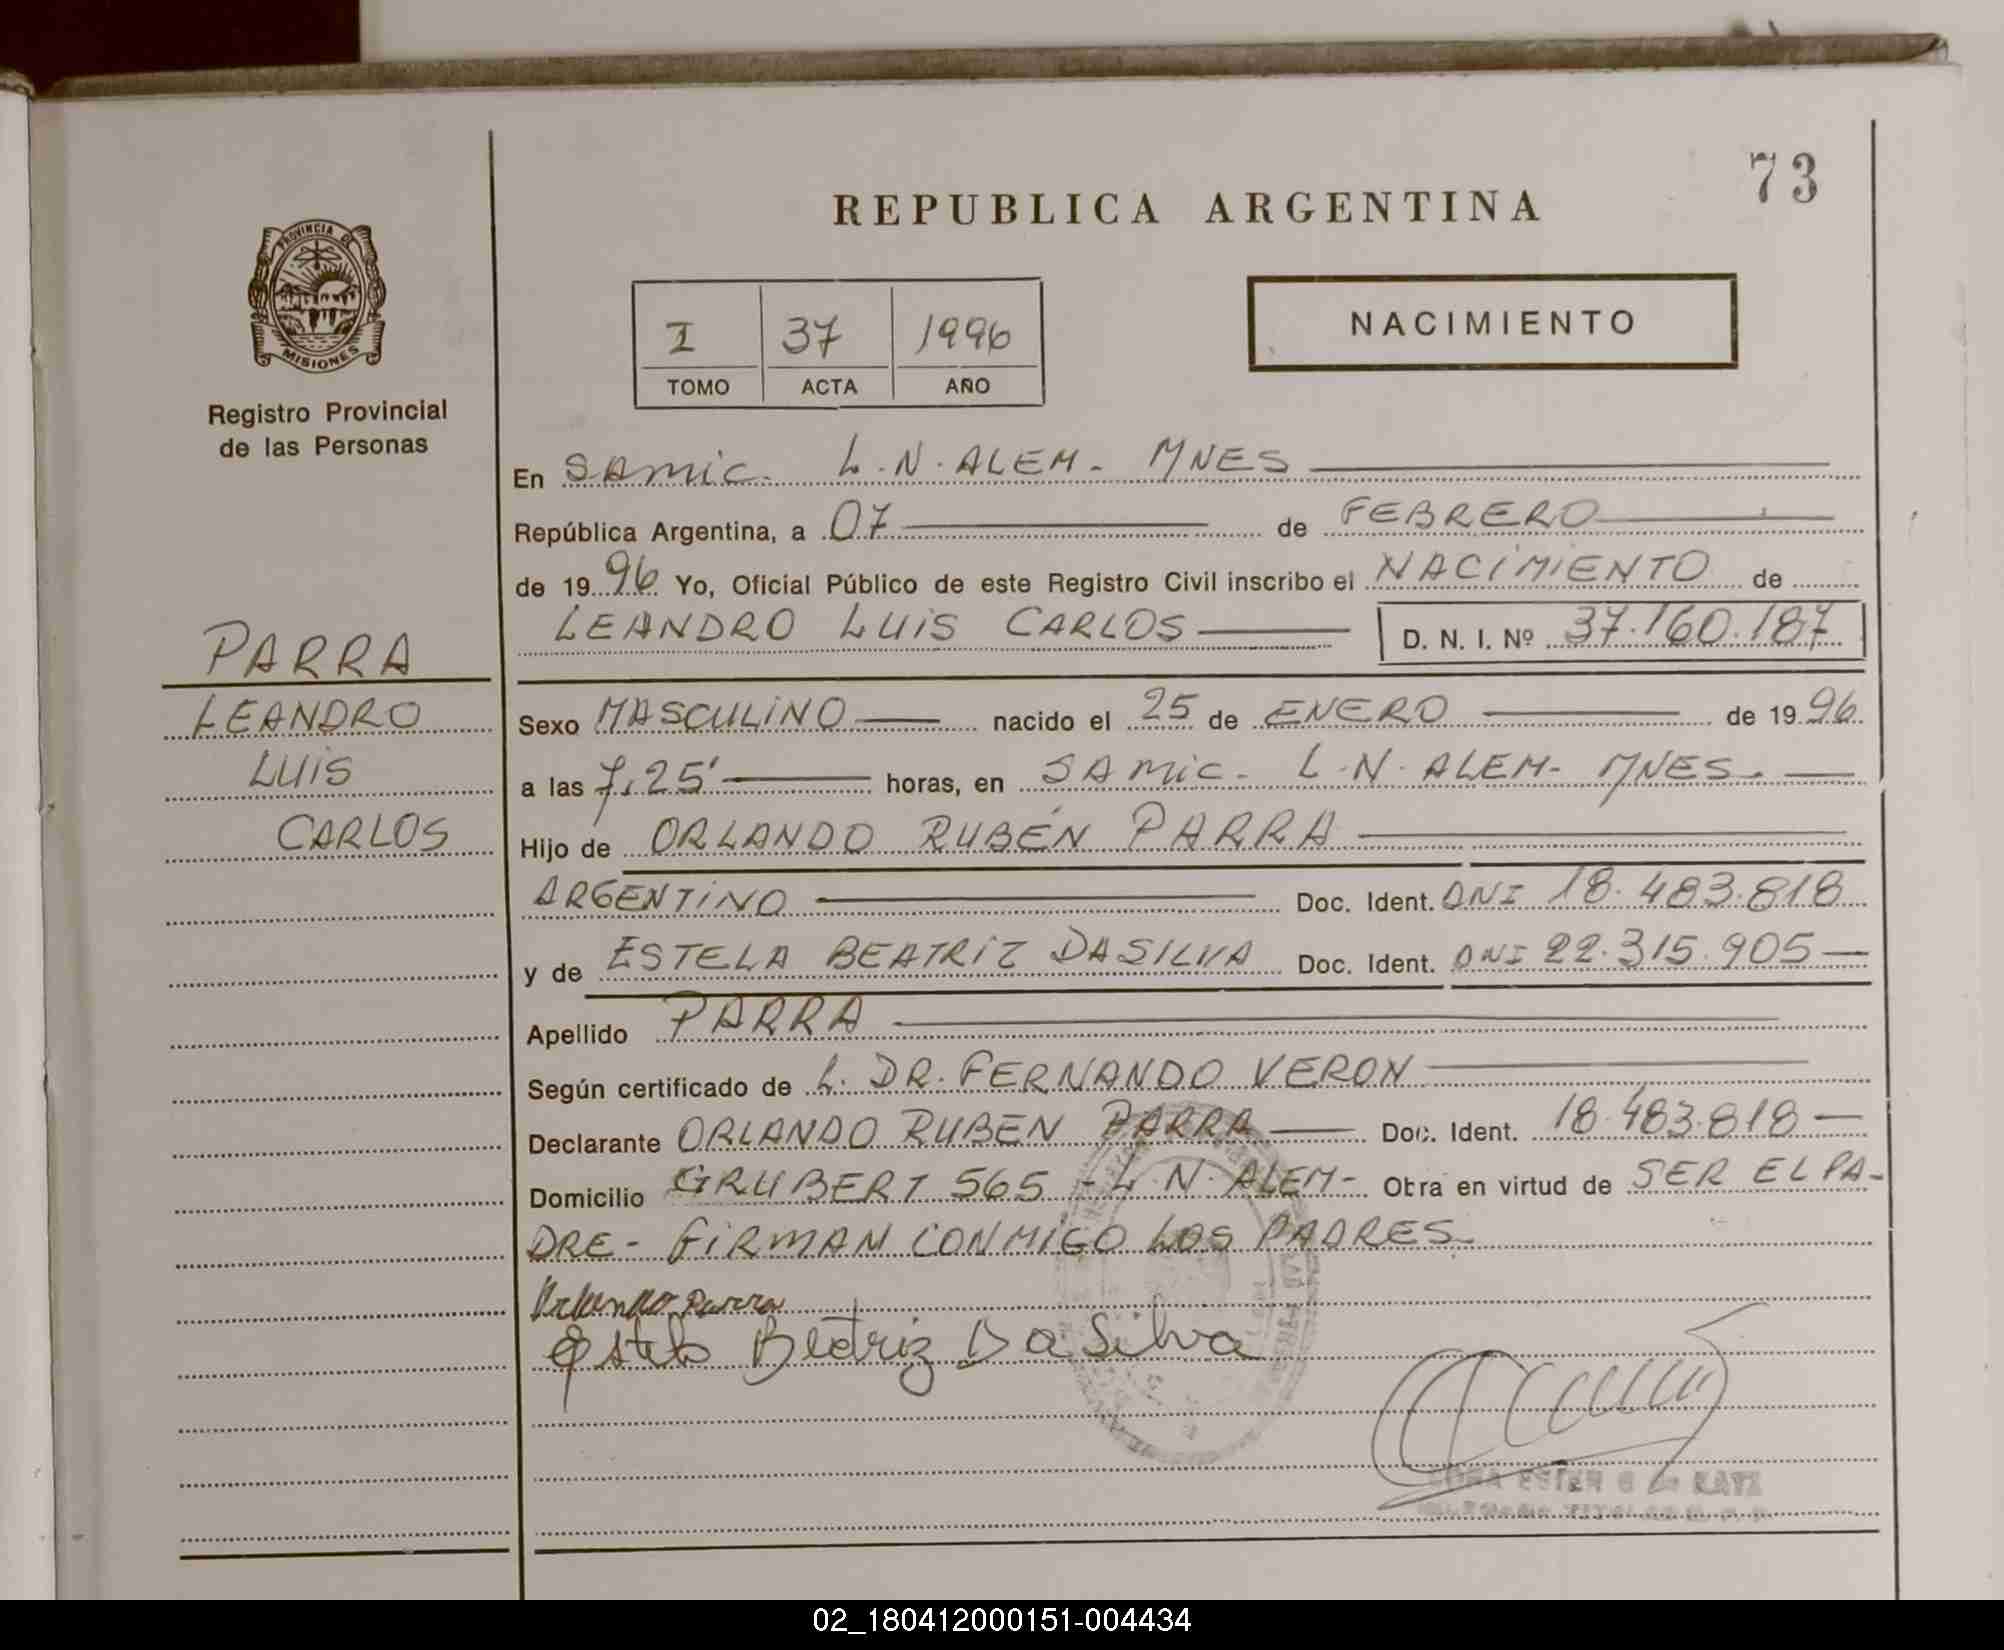 73
REPUBLICA ARGENTINA
PROVINCIA DE
MISIONES
Registro Provincial
de las Personas
I 37 1996
TOMO ACTA AÑO
NACIMIENTO
En SAMIC. L.N. ALEM - MNES
República Argentina, a 07 de FEBRERO
de 1996 Yo, Oficial Público de este Registro Civil inscribo el NACIMIENTO de
LEANDRO LUIS CARLOS D. N. I. Nº 37.160.187
PARRA
LEANDRO
LUIS
CARLOS
Sexo MASCULINO nacido el 25 de ENERO de 1996
a las 7,25' horas, en SAMIC - L.N. ALEM - MNES.
Hijo de ORLANDO RUBÉN PARRA
ARGENTINO Doc. Ident. DNI 18.483.818
y de ESTELA BEATRIZ DASILVA Doc. Ident. DNI 22.315.905
Apellido PARRA
Según certificado de L. DR. FERNANDO VERON
Declarante ORLANDO RUBEN PARRA Doc. Ident. 18.483.818
Domicilio GRUBERT 565 - L.N. ALEM - Obra en virtud de SER EL PA-
DRE - FIRMAN CONMIGO LOS PADRES
Orlando Parra
Estela Beatriz Da Silva
ESTER G de KATZ
02_180412000151-004434